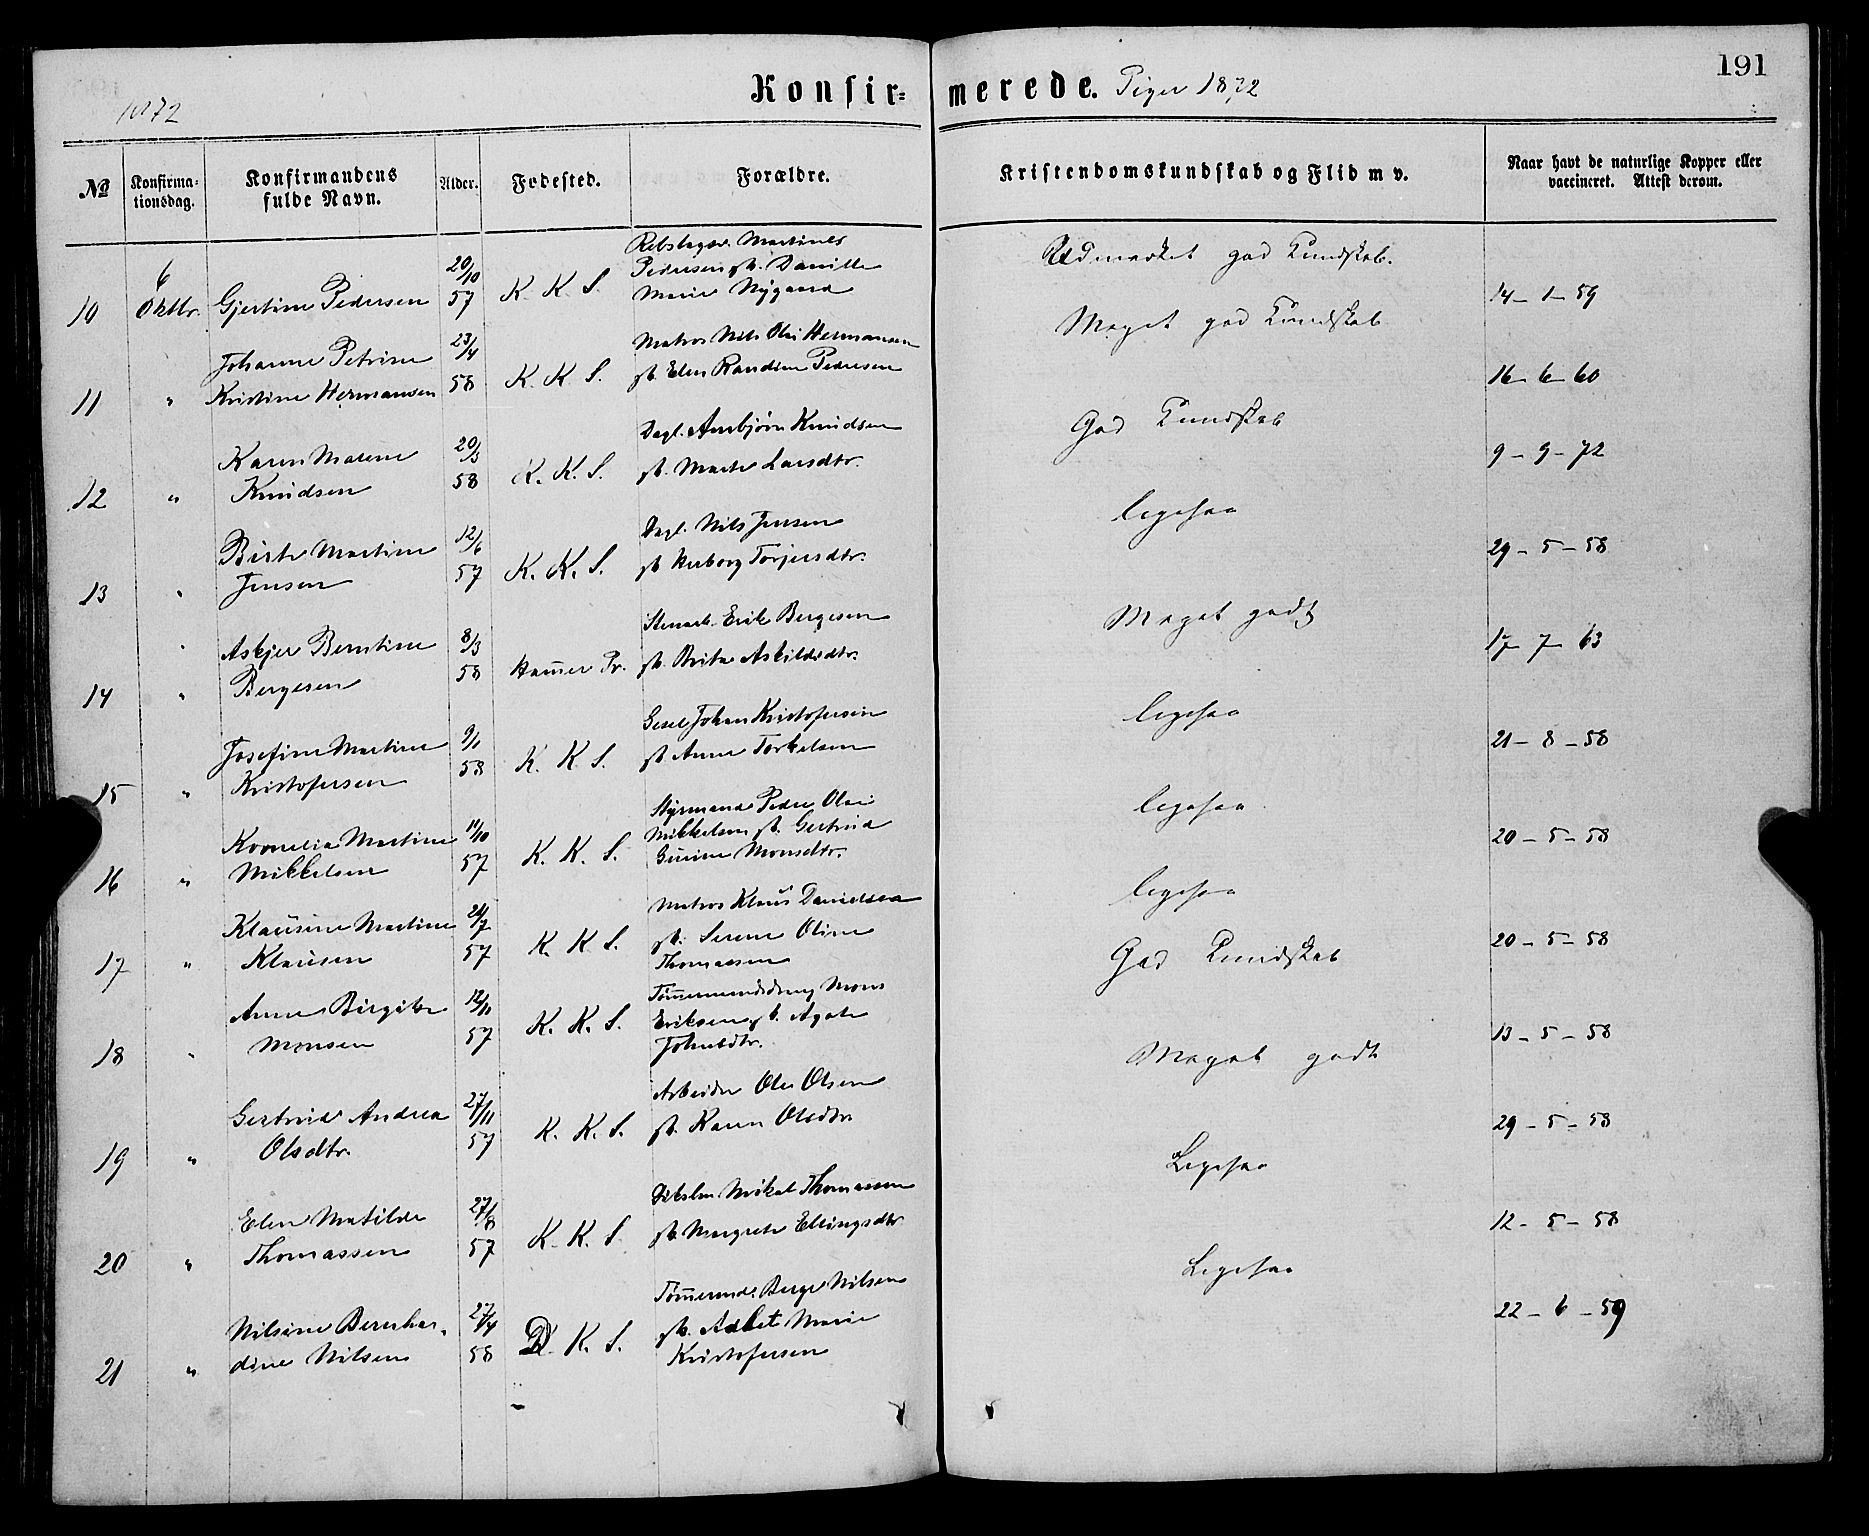 191
Konfirmerede. Piger 1872
1872
No
Konfirmationsdag.
Konfirmandens fulde Navn.
Alder.
Fødested.
Forældre.
Kristendomskundskab og Flid m v.
Naar havt de naturlige Kopper eller vaccineret. Attest derom.
10 6 Oktbr. Gjertine Pedersen 20/10 57 K. K. S. Rebslager Martinus
Pedersen gb. Danille
Marie Nygaard
Udmærket god Kundskab. 14-1-59
11 " Johanne Petrine
Kristine Hermansen 23/4 58 K. K. S. Matros Nils Olai Hermansen
gb. Elen Randine Pedersen
Meget god Kundskab 16-6-60
12 " Karen Malene
Knudsen 20/3 58 K. K. S. Dagl. Arnbjørn Knudsen
gb. Marte Larsdtr.
God Kundskab 9-9-72
13 " Birte Martine
Jensen 12/6 57 K. K. S. Dagl. Nils Jensen
gb. Herborg Torjersdtr.
ligesaa 29-5-58
14 " Askjer Berntine
Bergesen 8/3 58 Hammer Pr. Stenarb. Erik Bergesen
gb. Brita Askildsdtr.
Meget godt 17-7-63
15 " Josefine Martine
Kristofersen 9/1 58 K. K. S. Gesel Johan Kristofersen
gb. Anne Torkelsen
ligesaa 21-8-58
16 " Kornelia Martine
Mikkelsen 11/10 57 K. K. S. Styrmand Peder Olai
Mikkelsen gb. Gertrud
Gurine Monsdtr.
ligesaa 20-5-58
17 " Klausine Martine
Klausen 24/7 57 K. K. S. Matros Klaus Danielsen
gb. Serine Oline
Thomassen
ligesaa 20-5-58
18 " Anne Birgitte
Monsen 12/11 57 K. K. S. Tømmermandsdreng Mons
Eriksen gb. Agate
Johnsdtr.
God Kundskab 13-5-58
19 " Gertrud Andrea
Olsdtr. 27/11 57 K. K. S. Arbeider Ole Olsen
gb. Karen Olsdtr.
Meget godt 29-5-58
20 " Elen Matilde
Thomassen 27/8 57 K. K. S. Mikal Thomassen
gb. Margrete Ellingsdtr.
Ligesaa 12-5-58
21 " Nilsine Bernhar-
dine Nilsen 27/4 58 D. K. S. Tømmermd. Berge Nilsen
gb. Marie
Kristofersen
Ligesaa 22-6-59